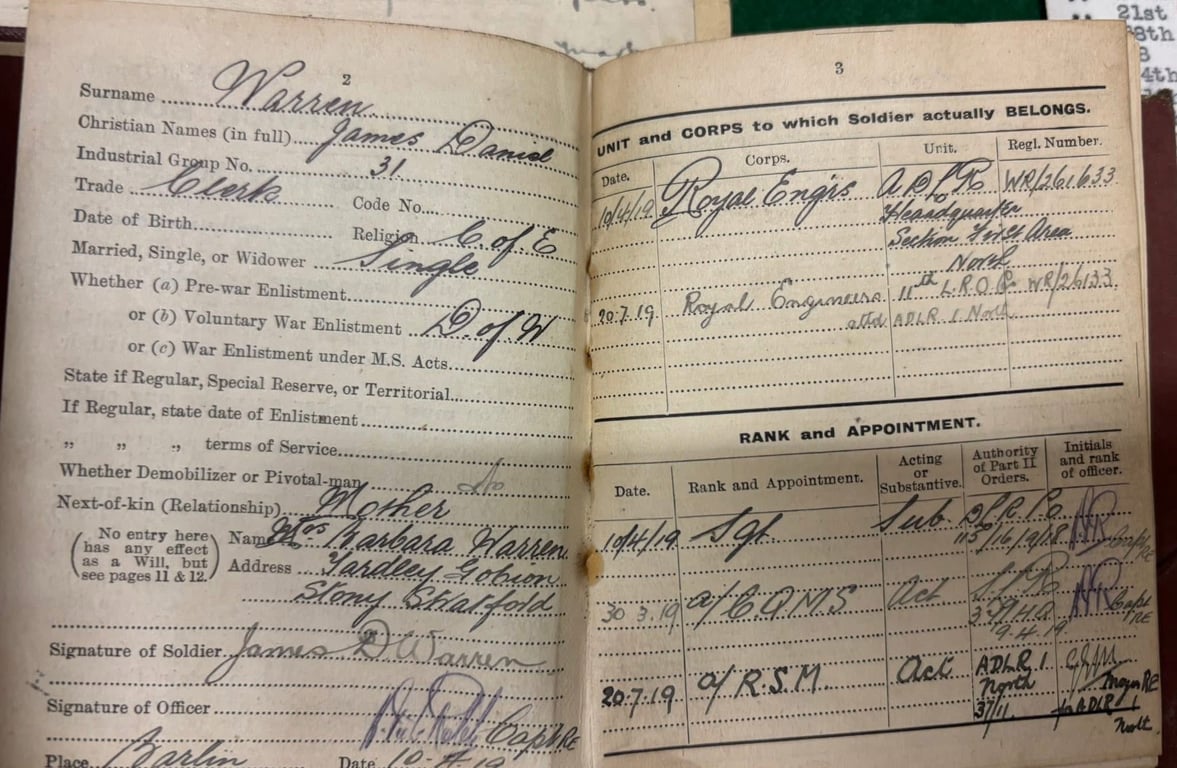 21st
8th
8
4th
2
Surname Warren
Christian Names (in full) James Daniel
Industrial Group No. 31
Trade Clerk Code No.
Date of Birth Religion C. of E
Married, Single, or Widower Single
Whether (a) Pre-war Enlistment
or (b) Voluntary War Enlistment D. of W
or (c) War Enlistment under M.S. Acts
State if Regular, Special Reserve, or Territorial
If Regular, state date of Enlistment
„ „ „ terms of Service
Whether Demobilizer or Pivotal-man No
Next-of-kin (Relationship) Mother
(No entry here has any effect as a Will, but see pages 11 & 12.)
Name Mrs Barbara Warren
Address Yardley Gobion
Stony Stratford
Signature of Soldier James D Warren
Signature of Officer Capt RE
Place Barlin Date
3
UNIT and CORPS to which Soldier actually BELONGS.
Date. Corps. Unit. Regl. Number.
10/4/19 Royal Engrs WR/261633
Headquarter
Section Area
North
20.7.19 Royal Engineers 11th WR/26133
attd ADLR 1 North
RANK and APPOINTMENT.
Date. Rank and Appointment. Acting or Substantive. Authority of Part II Orders. Initials and rank of officer.
10/4/19 Sgt. Sub.
Capt RE
30 3.19 a/C Q M S Act Capt RE
9.4.19
20.7.19 a/R.S.M. Act ADLR 1 North Major RE
for ADLR 1
North.